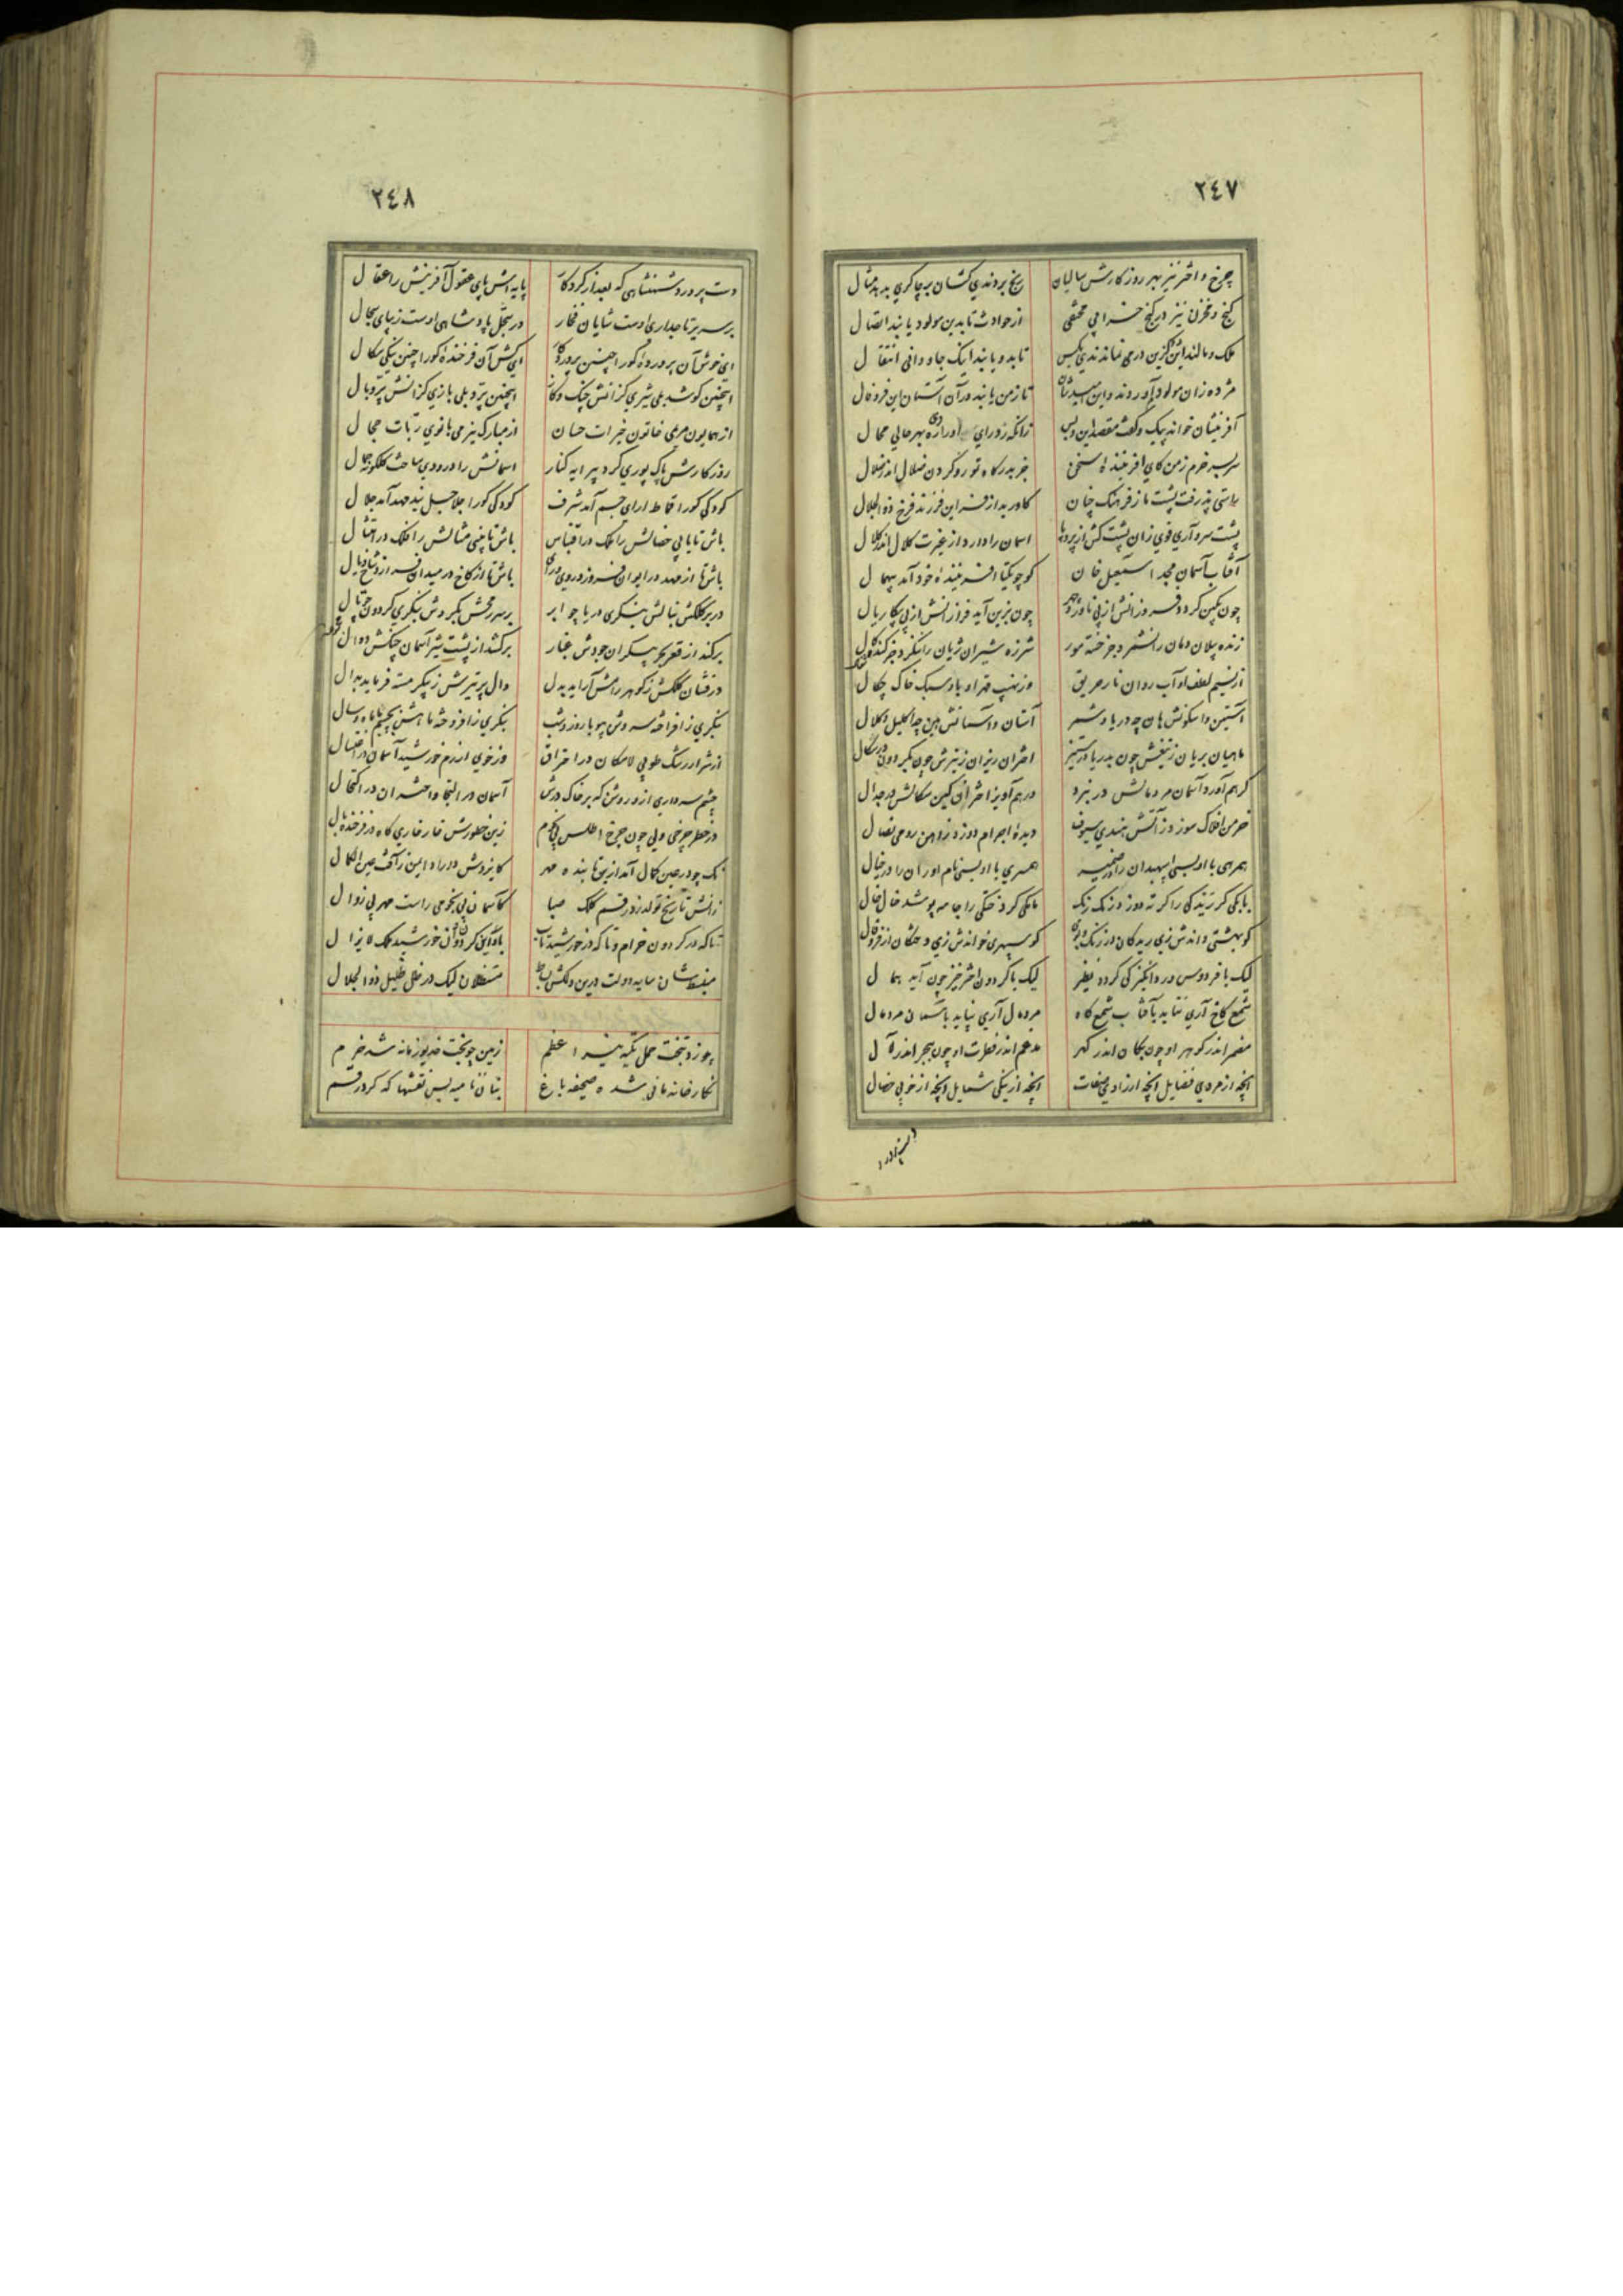 ٢٤٧
چرخ و اختر نیز بهر روزکارش سالیان رنج بردندی کشان بر چاکری بدهد مثال
کنج و مخزن نیز در کنج خرابی مختفی از حوادث تا بدین مولود یابند اتصال
ملک و مالند این کزین در می نماندندی بکس تا بدو یابند اینک جاودانی انتقال
مژده زان مولود آوردند و این امیدشان تا زمن یابند در آن آستان این فر و فال
آفرینشان خواند پیک و کفت مقصد این ولیک زانکه زد رای بهر حالی محال
سر بسر خرم زمن کای آفریننده سخن جز بدرکاه تو رو کردن ضلال اندر ضلال
راستی پذرفت پشت ما ز فرهنک چنان کاورید از فر این فرزند فرخ ذوالجلال
پشت سرو آری قوی زان پشت کش از پردها اسمان را دارد از غیرت کلال اندر کلال
آفتاب آسمان مجد اسمعیل خان کو چو یکتا آفریننده خود آمد بیهمال
چون بکین کردد فروزانش از پی ناورد چهر چون بزین آید فرازانش از پی پیکار یال
زنده پیلان دمان را نشمرد جز خسته مور شرزه شیران ژیان را ننکرد جز کنده
از نسیم لطف او آب روان نار حریق وز نهیب قهر او باد سبک خاک
آستین و آسکونش هان چه دریا و شمر آستان و آسمانش هین چه اکلیل و کلال
ماهیان بریان ز تیغش چون بدریا در ستیز اختران ریزان ز تیرش چون بکردون در سکال
کر هم آورد آسمان مر و مالش در نبرد در هم آویز اختران کین سکالش در جدال
خرمن افلاک سوزد ز آتش هندی سیوف دیده اجرام دوزد ز آهن رومی نصال
همرهی با او بسی اسپهبدان را در ضمیر همسری با او بسی نام آوران را در خیال
بابکی کر زندکی را کرته دوزد رنک رنک مانکی کر خستکی را جامه پوشد خال خال
کو بهشتی داندش زی ریدکان در رنک و بو کو سپهری خواندش زی و حشکان از فر و فال
لیک با فردوس درد انکیز کی کردد نظیر لیک با کردون اختر خیز چون آید همال
شمع کاخ آری نتابد بآفتاب شمع کاه مردمال آری نپاید بآسمان مردمال
مضمر اندر کوهر او چون بکان اندر کهر مدغم اندر فطرت او چون ببحر اندر لآل
آنچه از مردی فضایل آنچه از رادی صفات آنچه از نیکی شمایل آنچه از خوبی خصال
٢٤٨
دست پرورد شهنشاهی که بعد از کردکار پایه اش پای عقول آفرینش را عقال
بر سریر تاجداری اوست شایان فخار در سجل پادشاهی اوست زیبای سجال
ای خوش آن پرورده کورا چنین پروردکار ای کش آن فرخنده کورا چنین نیکی سکال
اینچنین کوشد بلی شیری کزانش چنک و کاز اینچنین پرد بلی بازی کزانش پر و بال
از همایون مریمی خاتون خیرات حسان از مبارک نیز می بانوی ربات حجال
روزکارش پاک پوری کرد پیرایه کنار اسمانش راد رودی ساخت کلکونه جمال
کودکی کورا قماط آرای جسم آمد شرف کودکی کورا جلاجل بند مهد آمد جلال
باش تا یابی خصالش را ملک در اقتباس باش تا بینی مثالش را فلک در امتثال
باش تا از مهد در ایوان فروزد روی و رای باش تا از کاخ در میدان فرازد شاخ و یال
در بر کلکش بنالش بنکری دریا چو ابر بر سر رخشش بکردش بنکری کردون جو نال
برکند از قعر بحر بیکران جودش غبار برکشد از پشت شیر آسمان چنکش دوال
درفشان کلکش ز کوهر رامش آراید بدل دال پر تیرش ز پیکر مسته فرماید بدال
بنکری ز افراخته سروش بپویا روز و شب بنکری ز افروخته ماهش بچشم ماه و سال
از شرار رشک طوبی لامکان در احتراق وز خوی آزرم خورشید آسمان در اغتسال
چشم سرداری ازو روشن که بر خاک درش آسمان در التجا و اختران در اکتحال
در خطر چرخی ولی چون چرخ اطلس پی کرم زین خطورش خار خاری کاه در فرخنده بال
نک چو در عین کمال آمد ازین تابنده مهر کایزدش دارد امین ز آفت عین الکمال
زانش تاریخ تولد زد رقم کلک صبا کآسمان پی نجومی راست مهر بی زوال
تا که در کردون خرام و تا که در خورشید تاب باد این کردون آن خورشید ملک لایزال
منبسط شان سایه دولت درین دلکش بساط مستظلان لیک در ظل ظلیل ذوالجلال
چو زد بتخت حمل تکیه نیر اعظم زمین چو بخت خدیو زمانه شد خرم
نکارخانه مانی شده صحیفه باغ بنان نامیه بس نقشها که کرد رقم